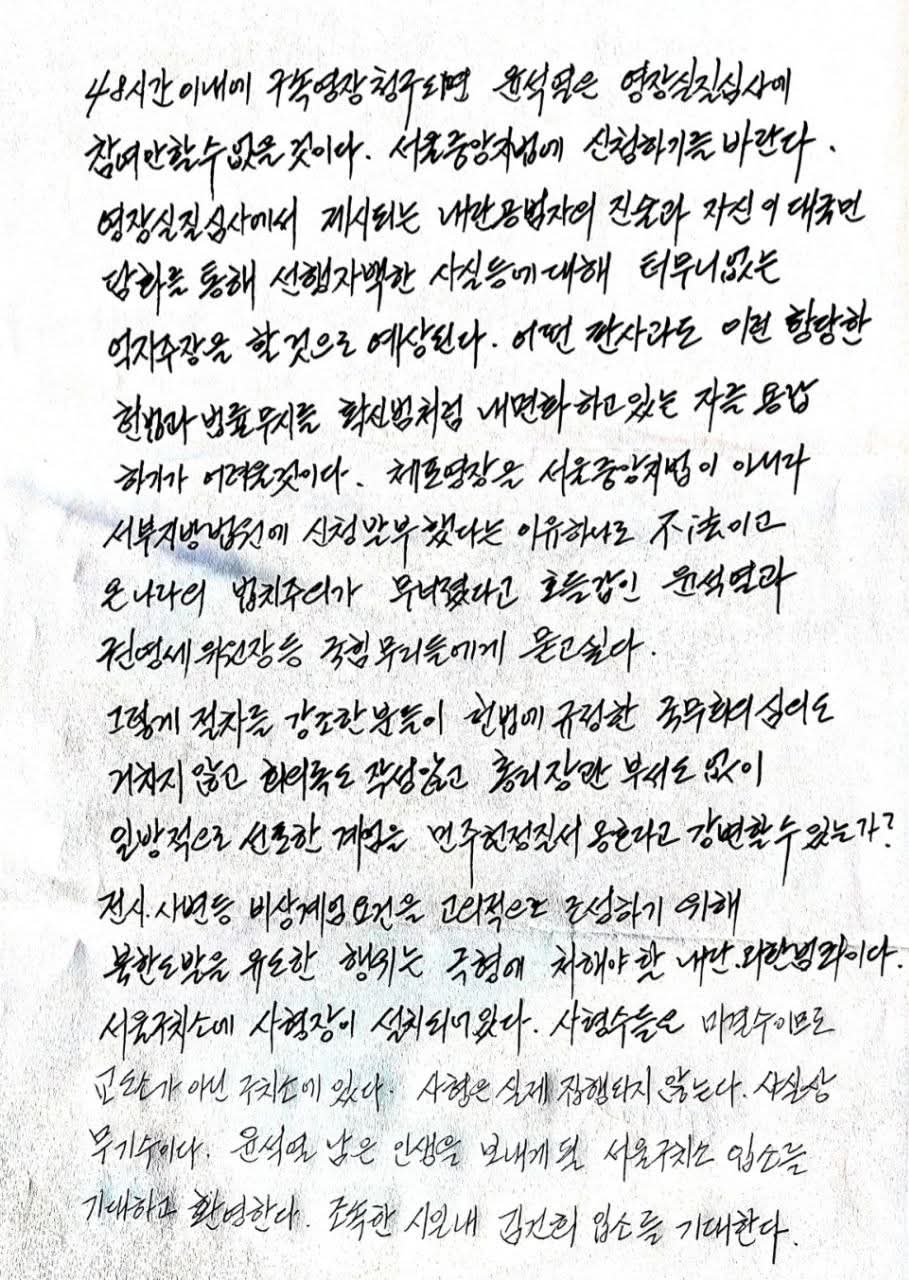 48시간이내에 구속영장청구되면 윤석열은 영장실질심사에
참여안할수없을것이다. 서울중앙지법에 신청하기를바란다.
영장실질심사에서 제시되는 내란공범자의 진술과 자신이 대국민
담화를 통해 선행자백한 사실등에대해 터무니없는
억지주장을 할것으로 예상된다. 어떤 판사라도 이런 황당한
헌법과 법률무지를 확신범처럼 내면화하고있는 자를 용납
하기가 어려울것이다. 체포영장을 서울중앙지법이 아니라
서부지방법원에 신청발부했다는 이유하나로 不法이고
온나라의 법치주의가 무너졌다고 호들갑인 윤석열과
권영세위원장등 국힘무리들에게 묻고싶다.
그렇게 절차를 강조한분들이 헌법에규정한 국무회의심의도
거치지 않고 회의록도 작성않고 총리장관 부서도 없이
일방적으로 선포한 계엄을 민주헌정질서 옹호라고 강변할수있는가?
전시.사변등 비상계엄요건을 고의적으로 조성하기 위해
북한도발을 유도한 행위는 극형에 처해야할 내란.외환범죄이다.
서울구치소에 사형장이 설치되어있다. 사형수들은 미결수이므로
교도소가 아닌 구치소에 있다. 사형은 실제집행되지 않는다. 사실상
무기수이다. 윤석열 남은 인생을 보내게될 서울구치소 입소를
기대하고 환영한다. 조속한 시일내 김건희 입소를 기대한다.